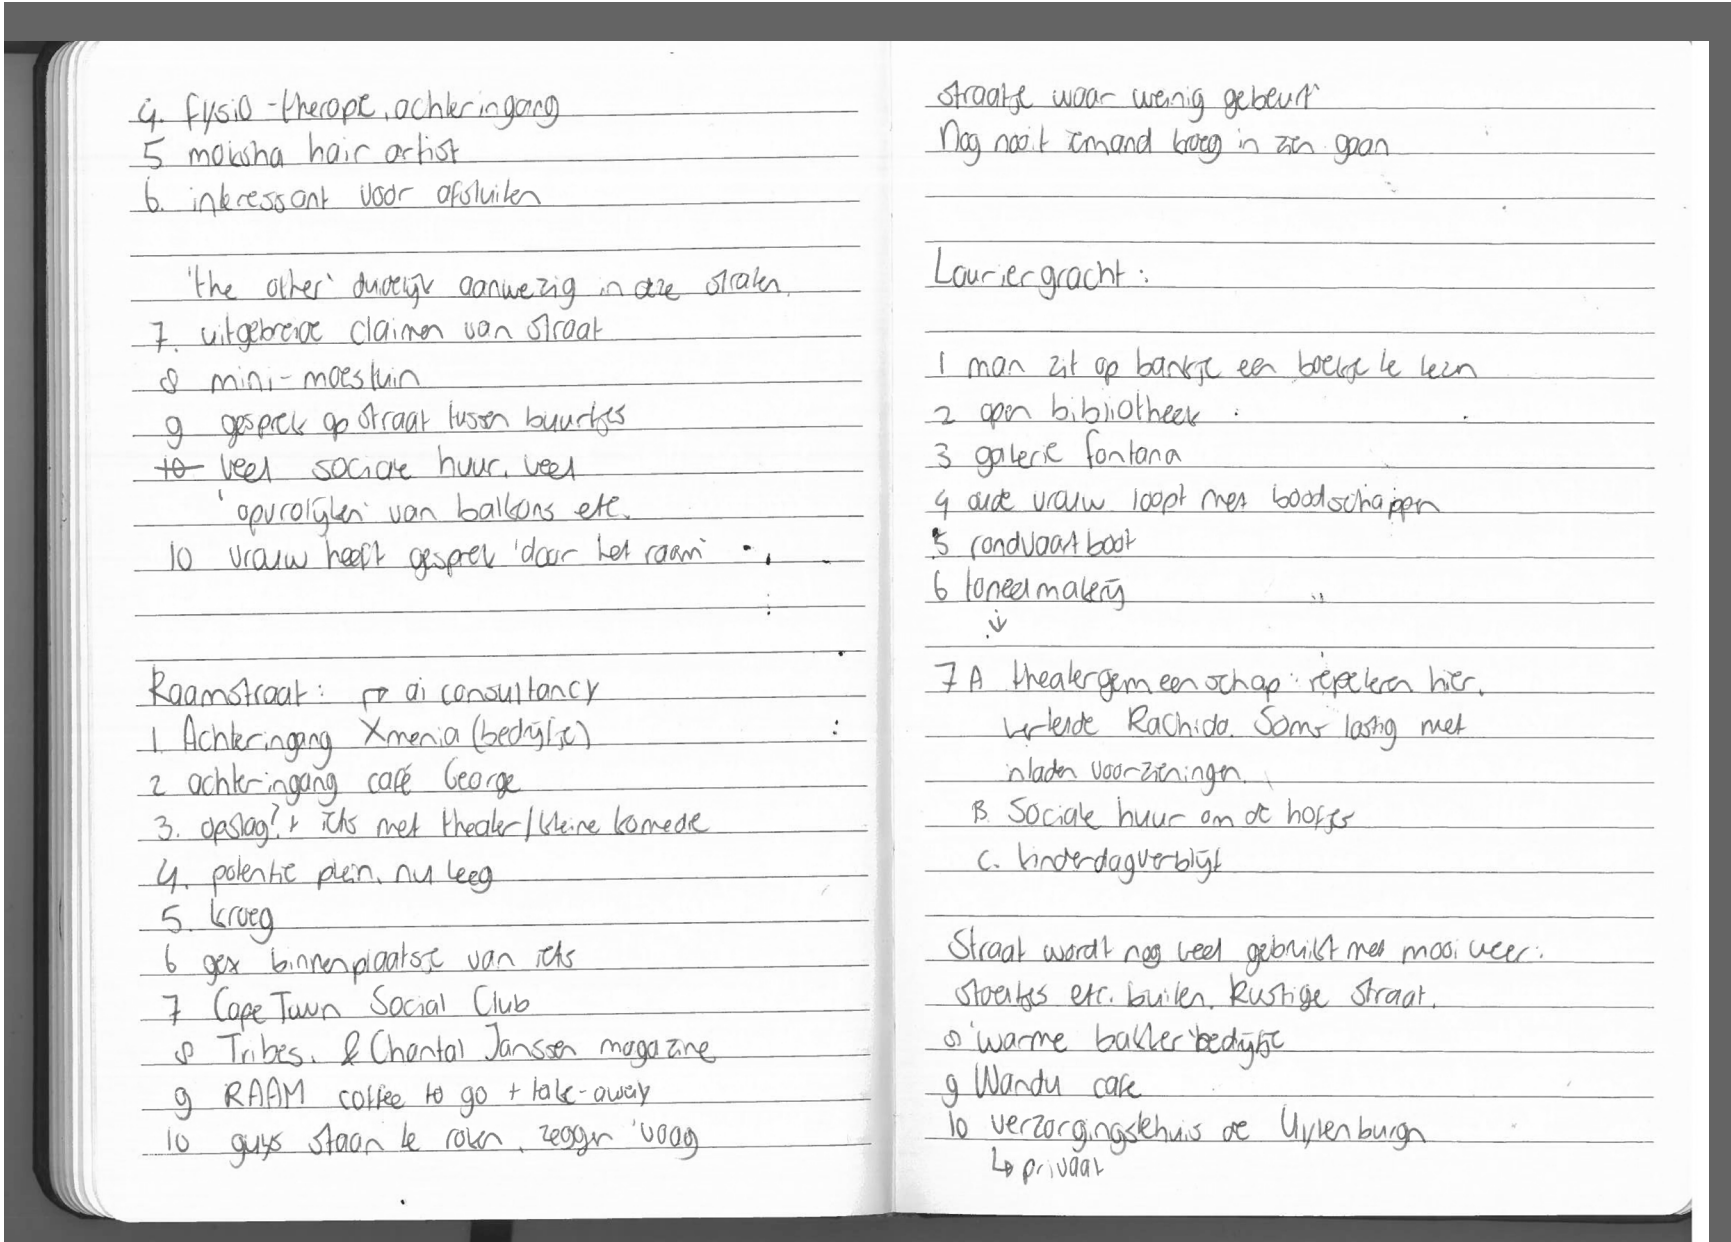 4. fysio-therapie, achteringang
5 moksha hair artist
6. interessant voor afsluiten
'the other' duidelijk aanwezig in deze straten.
7. uitgebreide claimen van straat
8 mini-moestuin
9 gesprek op straat tussen buurtjes
10 veel sociale huur, veel
'opvrolijken' van balkons etc.
10 vrouw heeft gesprek 'door het raam'
Raamstraat: → ai consultancy
1. Achteringang Xmenia (bedrijfje)
2 achteringang café George
3. opslag? + iets met theater/kleine komedie
4. potentie plein, nu leeg
5. kroeg
6 binnenplaatsje van iets
7 Cape Town Social Club
8 Tribes. & Chantal Janssen magazine
9 RAAM coffee to go + take-away
10 guys staan te roken, zeggen 'vaag
straatje waar weinig gebeurt'
Nog nooit iemand kroeg in zien gaan
Lauriergracht:
1 man zit op bankje een boekje te lezen
2 open bibliotheek
3 galerie fontana
4 oude vrouw loopt met boodschappen
5 rondvaartboot
6 toneelmakerij
↓
7 A theatergemeenschap: repeteren hier.
vertelde Rachida. Soms lastig met
inladen voorzieningen.
B. Sociale huur om de hofjes
C. kinderdagverblijf
Straat wordt nog veel gebruikt met mooi weer:
stoeltjes etc. buiten. Rustige straat.
8 'warme bakker' bedrijfje
9 Wandu cafe
10 verzorgingstehuis de Uylenburgh
↳ privaat